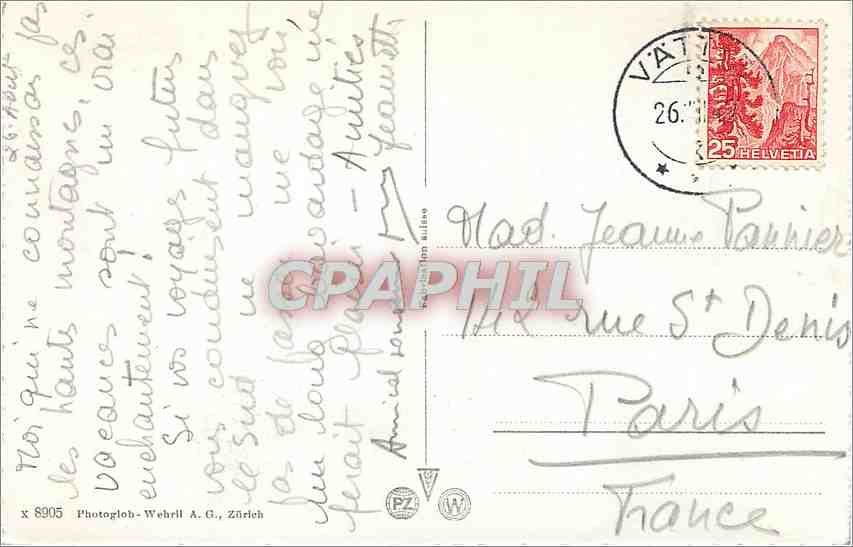 26 Août
Moi qui ne connaissais pas
les hautes montagnes, ces
vacances sont un vrai
enchantement!
Si vos voyages futurs
vous conduisent dans
le Sud ne manquez
pas de passer me voir
un long bavardage me
ferait plaisir - Amitiés
Amical souvenir Jeannette
VÄTT
26.
25 HELVETIA
Mad. Jeanne Pannier
212 rue St Denis
Paris
France
Fabrication suisse
CPAPHIL
PZ
W
X 8905 Photoglob-Wehrli A. G., Zürich